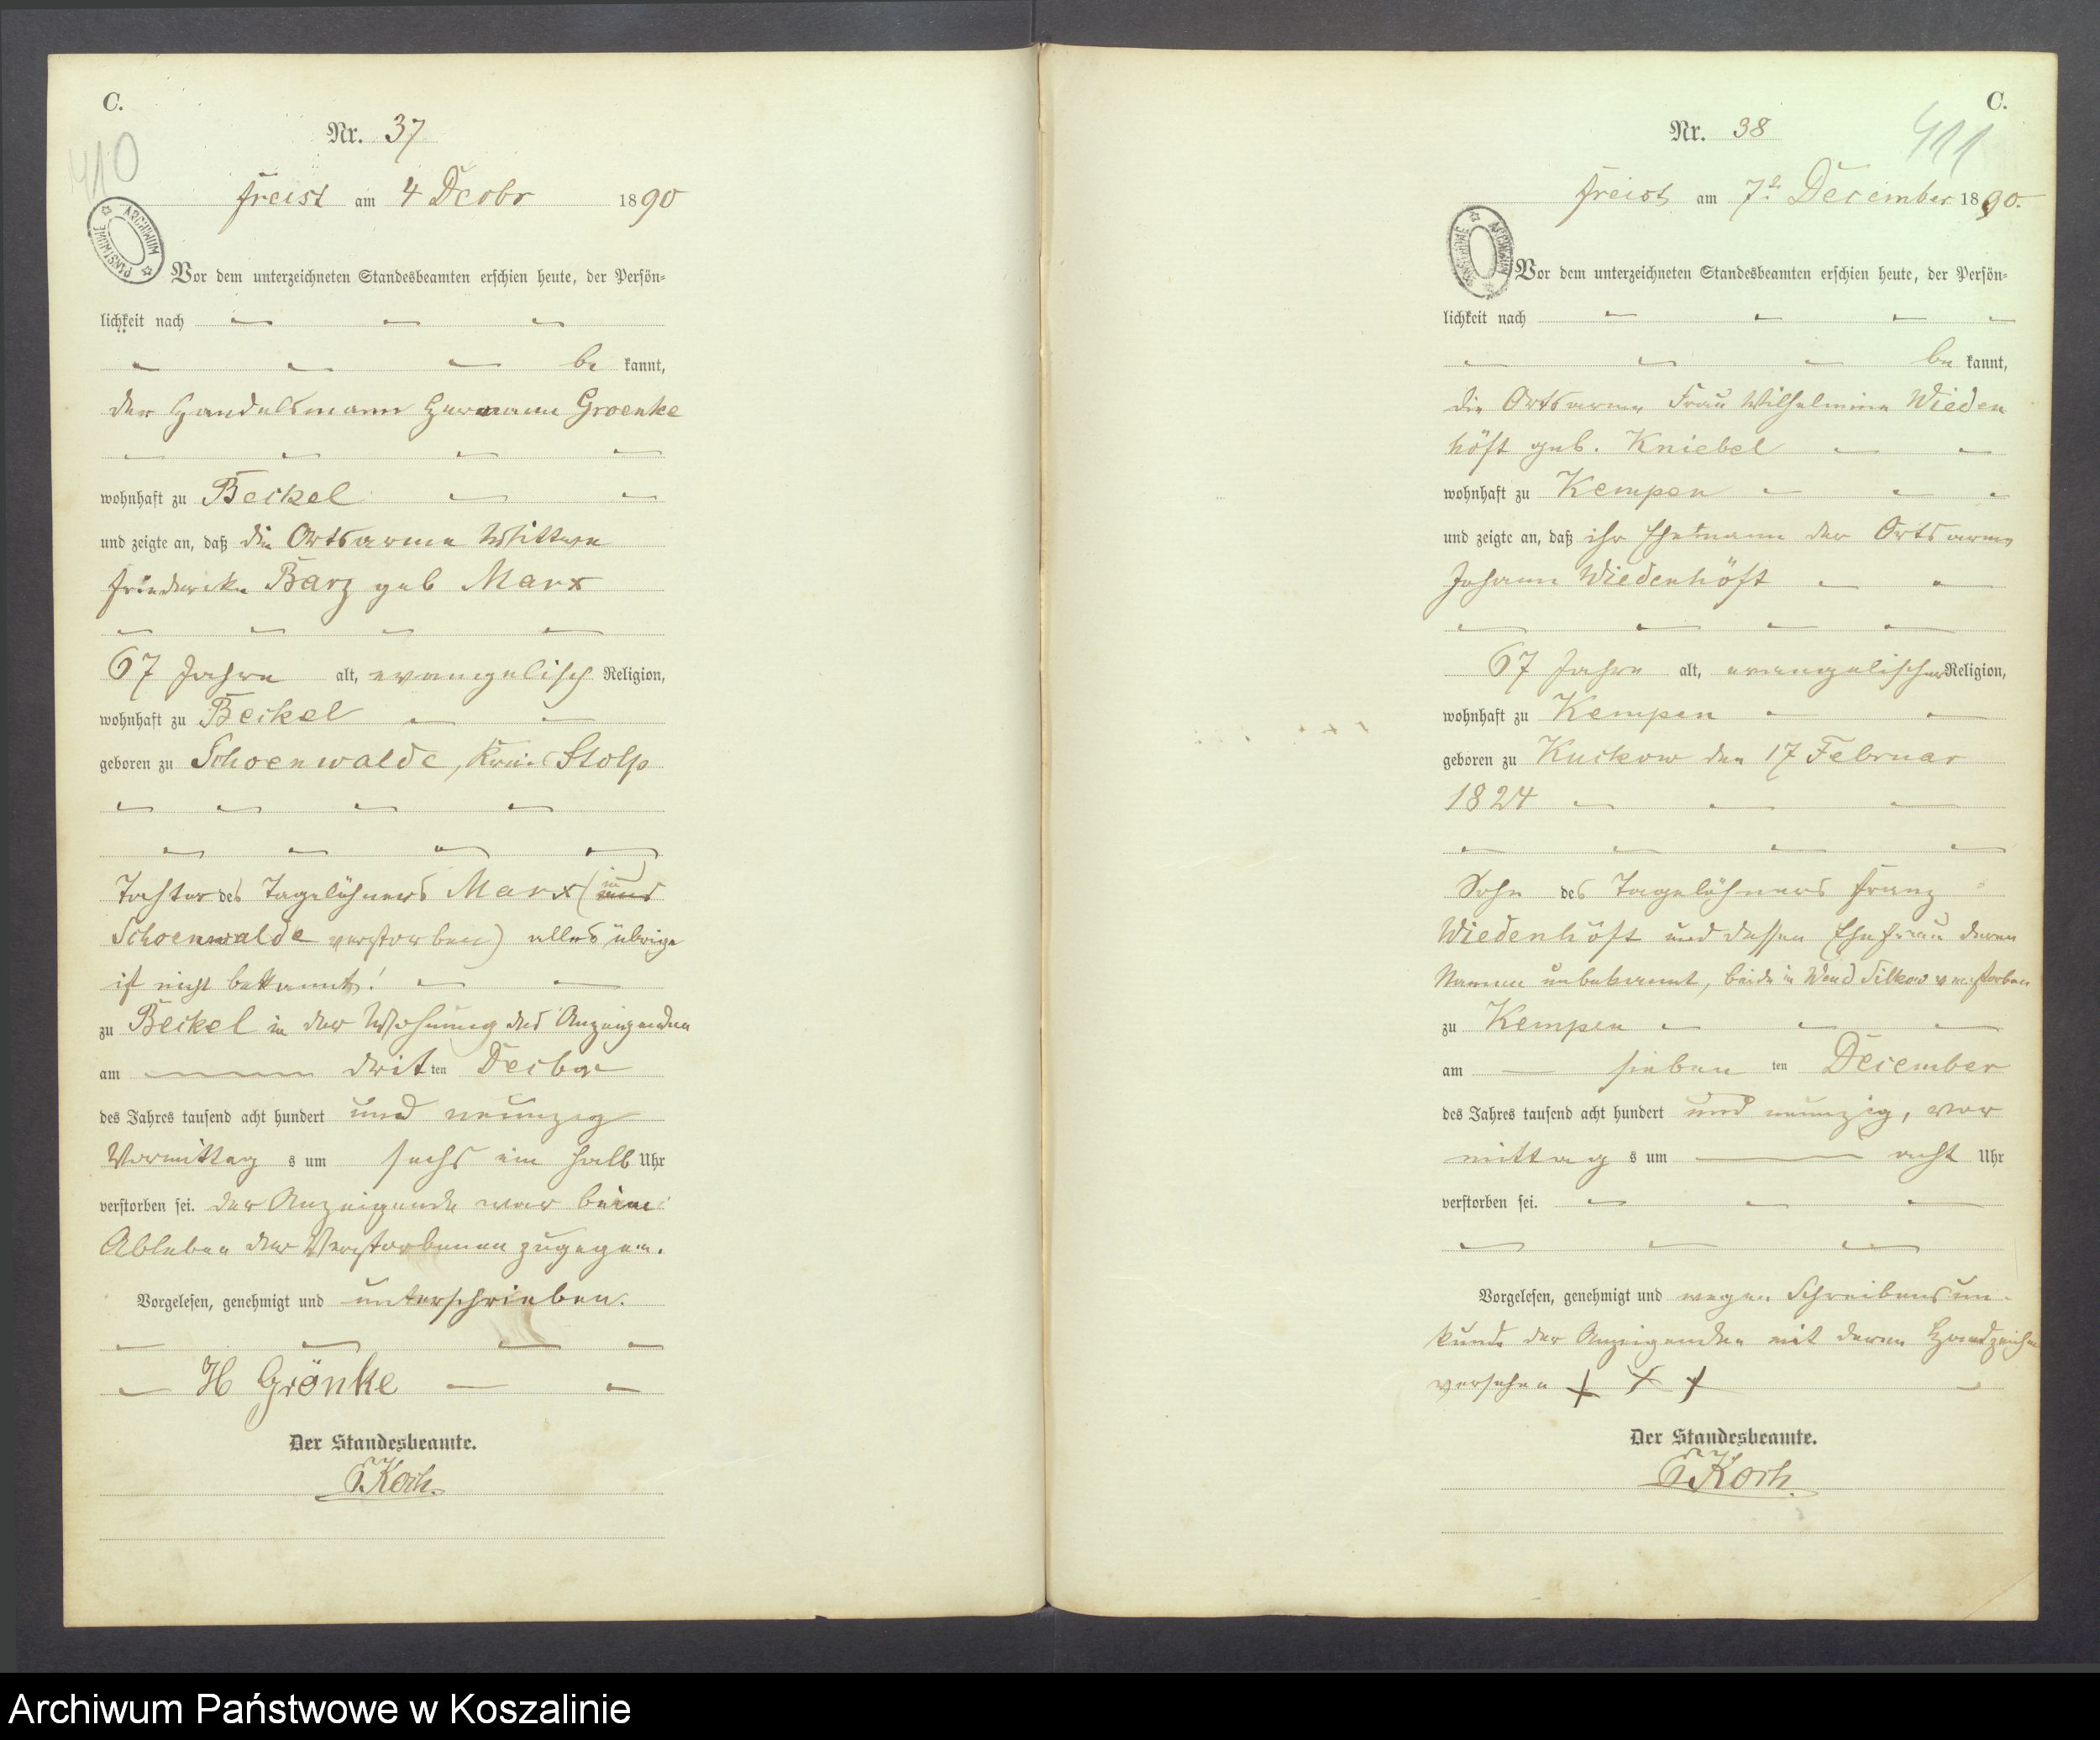 C.
410
Nr. 37
Freist am 4 Decbr 1890
ARCHIWUM PAŃSTWOWE
Vor dem unterzeichneten Standesbeamten erschien heute, der Persön-
lichkeit nach
be kannt,
der Handelsmann Hermann Groenke
wohnhaft zu Beckel
und zeigte an, daß die Ortsarme Wittwe
Friedericke Barz geb Marx
67 Jahre alt, evangelisch Religion,
wohnhaft zu Beckel
geboren zu Schoenwalde, Kreis Stolp
Tochter des Tagelöhners Marx (in
Schoenwalde verstorben) alles übrige
ist nicht bekannt!
zu Beckel in der Wohnung des Anzeigenden
am dritten Decbr
des Jahres tausend acht hundert und neunzig
Vormittag s um sechs ein halb Uhr
verstorben sei. der Anzeigende war beim
Ableben der Verstorbenen zugegen.
Vorgelesen, genehmigt und unterschrieben.
H Grönke
Der Standesbeamte.
Koch.
C.
411
Nr. 38
Freist am 7t December 1890.
ARCHIWUM PAŃSTWOWE
Vor dem unterzeichneten Standesbeamten erschien heute, der Persön-
lichkeit nach
be kannt,
die Ortsarme Frau Wilhelmine Wieden
höft geb. Kniebel
wohnhaft zu Kempen
und zeigte an, daß ihr Ehemann der Ortsarme
Johann Wiedenhöft
67 Jahre alt, evangelischer Religion,
wohnhaft zu Kempen
geboren zu Kuckow den 17 Februar
1824
Sohn des Tagelöhners Franz
Wiedenhöft und dessen Ehefrau deren
Namen unbekannt, beide in Wend Silkow verstorben
zu Kempen
am sieben ten December
des Jahres tausend acht hundert und neunzig, vor
mittag s um acht Uhr
verstorben sei.
Vorgelesen, genehmigt und wegen Schreibensun-
kunde der Anzeigenden mit deren Handzeichen
versehen + + +
Der Standesbeamte.
Koch.
Archiwum Państwowe w Koszalinie